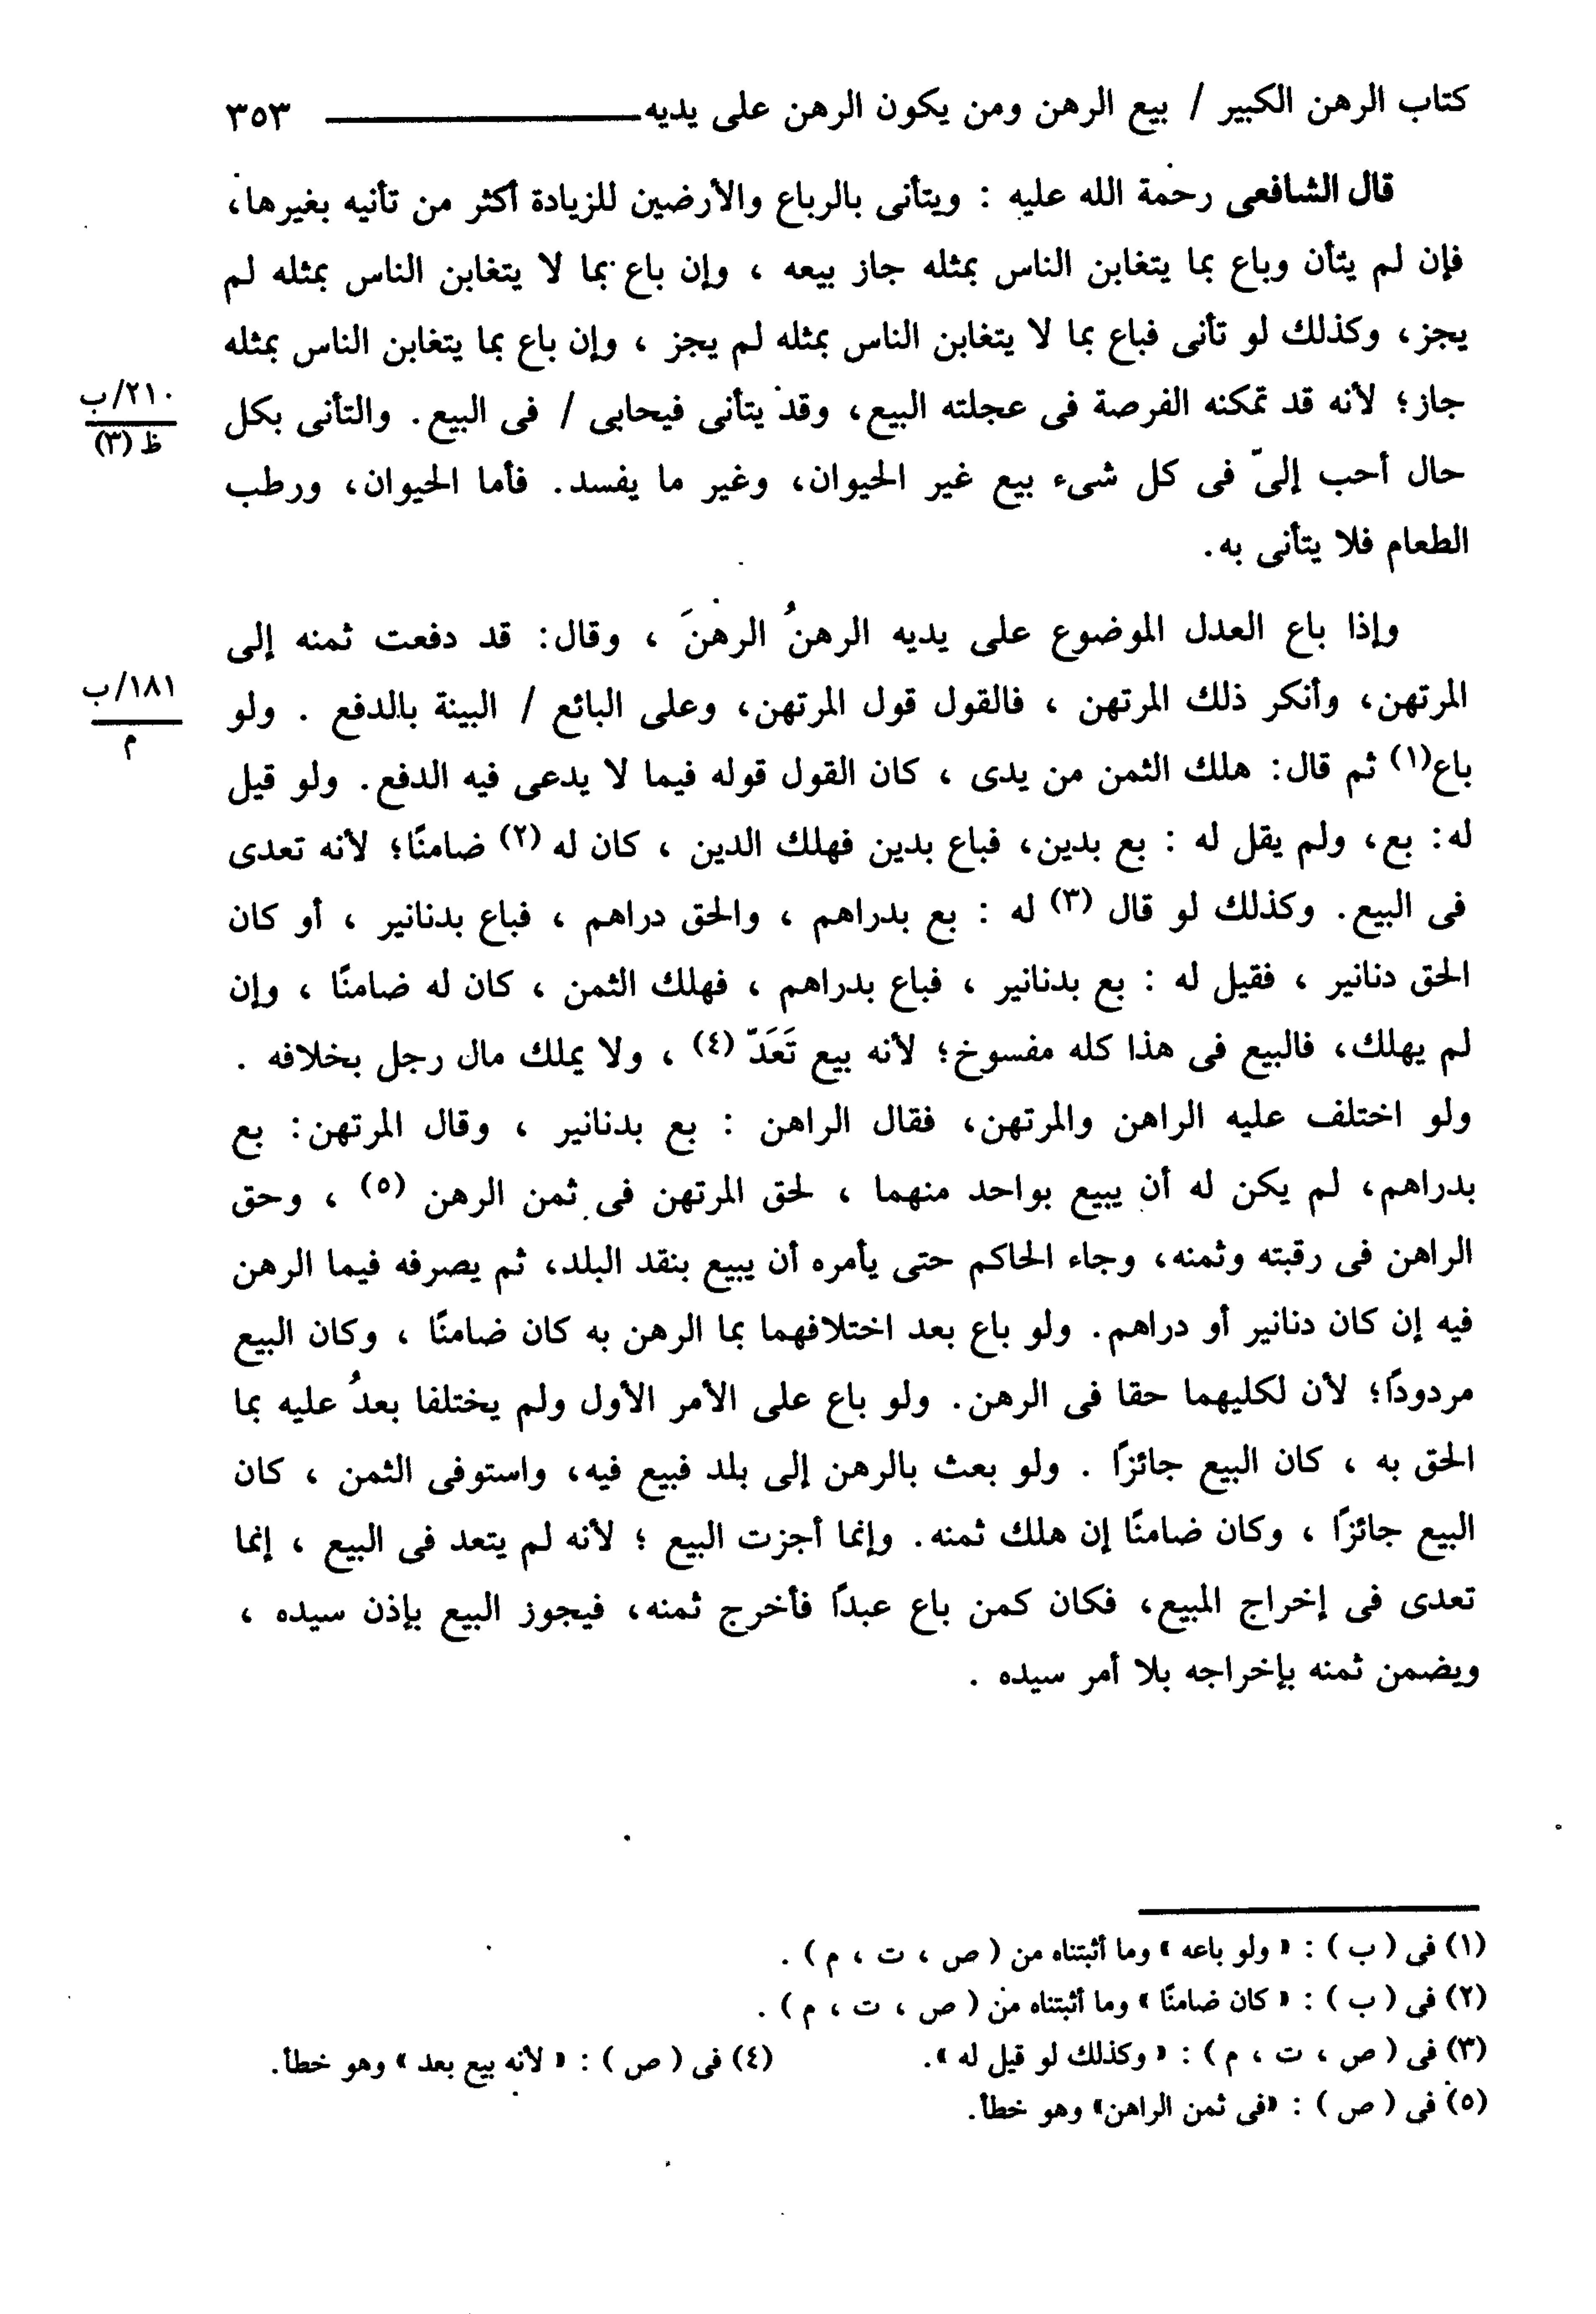 كتاب الرهن الكبير / بيع الرهن ومن يكون الرهن على يديه ٣٥٣
قال الشافعى رحمة الله عليه : ويتأنى بالرباع والأرضين للزيادة أكثر من تأنيه بغيرها،
فإن لم يتأن وباع بما يتغابن الناس بمثله جاز بيعه ، وإن باع بما لا يتغابن الناس بمثله لم
يجز، وكذلك لو تأنى فباع بما لا يتغابن الناس بمثله لم يجز ، وإن باع بما يتغابن الناس بمثله
جاز؛ لأنه قد تمكنه الفرصة فى عجلته البيع، وقد يتأنى فيحابى / فى البيع. والتأنى بكل
٢١٠/ب
ظ (٣)
حال أحب إلىّ فى كل شىء بيع غير الحيوان، وغير ما يفسد. فأما الحيوان، ورطب
الطعام فلا يتأنى به.
وإذا باع العدل الموضوع على يديه الرهنُ الرهنَ ، وقال: قد دفعت ثمنه إلى
المرتهن، وأنكر ذلك المرتهن ، فالقول قول المرتهن، وعلى البائع / البينة بالدفع . ولو
١٨١/ب
م
باع(١) ثم قال: هلك الثمن من يدى ، كان القول قوله فيما لا يدعى فيه الدفع. ولو قيل
له: بع، ولم يقل له : بع بدين، فباع بدين فهلك الدين ، كان له (٢) ضامنًا؛ لأنه تعدى
فى البيع. وكذلك لو قال (٣) له : بع بدراهم ، والحق دراهم ، فباع بدنانير ، أو كان
الحق دنانير ، فقيل له : بع بدنانير ، فباع بدراهم ، فهلك الثمن ، كان له ضامنًا ، وإن
لم يهلك، فالبيع فى هذا كله مفسوخ؛ لأنه بيع تَعَدّ (٤) ، ولا يملك مال رجل بخلافه .
ولو اختلف عليه الراهن والمرتهن، فقال الراهن : بع بدنانير ، وقال المرتهن: بع
بدراهم، لم يكن له أن يبيع بواحد منهما ، لحق المرتهن فى ثمن الرهن (٥) ، وحق
الراهن فى رقبته وثمنه، وجاء الحاكم حتى يأمره أن يبيع بنقد البلد، ثم يصرفه فيما الرهن
فيه إن كان دنانير أو دراهم. ولو باع بعد اختلافهما بما الرهن به كان ضامنًا ، وكان البيع
مردودًا؛ لأن لكليهما حقا فى الرهن. ولو باع على الأمر الأول ولم يختلفا بعدُ عليه بما
الحق به ، كان البيع جائزًا . ولو بعث بالرهن إلى بلد فبيع فيه، واستوفى الثمن ، كان
البيع جائزًا ، وكان ضامنًا إن هلك ثمنه. وإنما أجزت البيع ؛ لأنه لم يتعد فى البيع ، إنما
تعدى فى إخراج المبيع، فكان كمن باع عبدًا فأخرج ثمنه، فيجوز البيع بإذن سيده ،
ويضمن ثمنه بإخراجه بلا أمر سيده .
(١) فى ( ب ) : « ولو باعه » وما أثبتناه من ( ص ، ت ، م ) .
(٢) فى ( ب ) : « كان ضامنًا » وما أثبتناه من ( ص ، ت ، م ) .
(٣) فى ( ص ، ت ، م ) : « وكذلك لو قيل له ». (٤) فى ( ص ) : « لأنه بيع بعد » وهو خطأ.
(٥) فى ( ص ) : «فى ثمن الراهن» وهو خطأ.